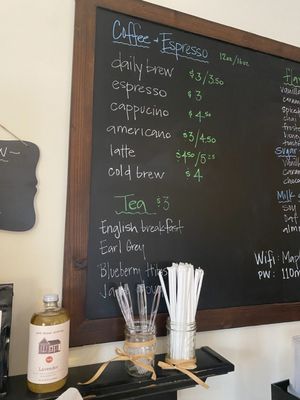 Coffee + Espresso 12oz/16oz
daily brew $3/3.50
espresso $3
cappucino $4.50
americano $3/4.50
latte $4.50/5.25
cold brew $4
Tea $3
English breakfast
Earl Grey
Blueberry
vanilla
caram
spiced
chai
honey
toasted
Sugar
vanilla
caram
choco
Milk
soy
oat
almo
Wifi: Mapl
PW: 110m
Lavender